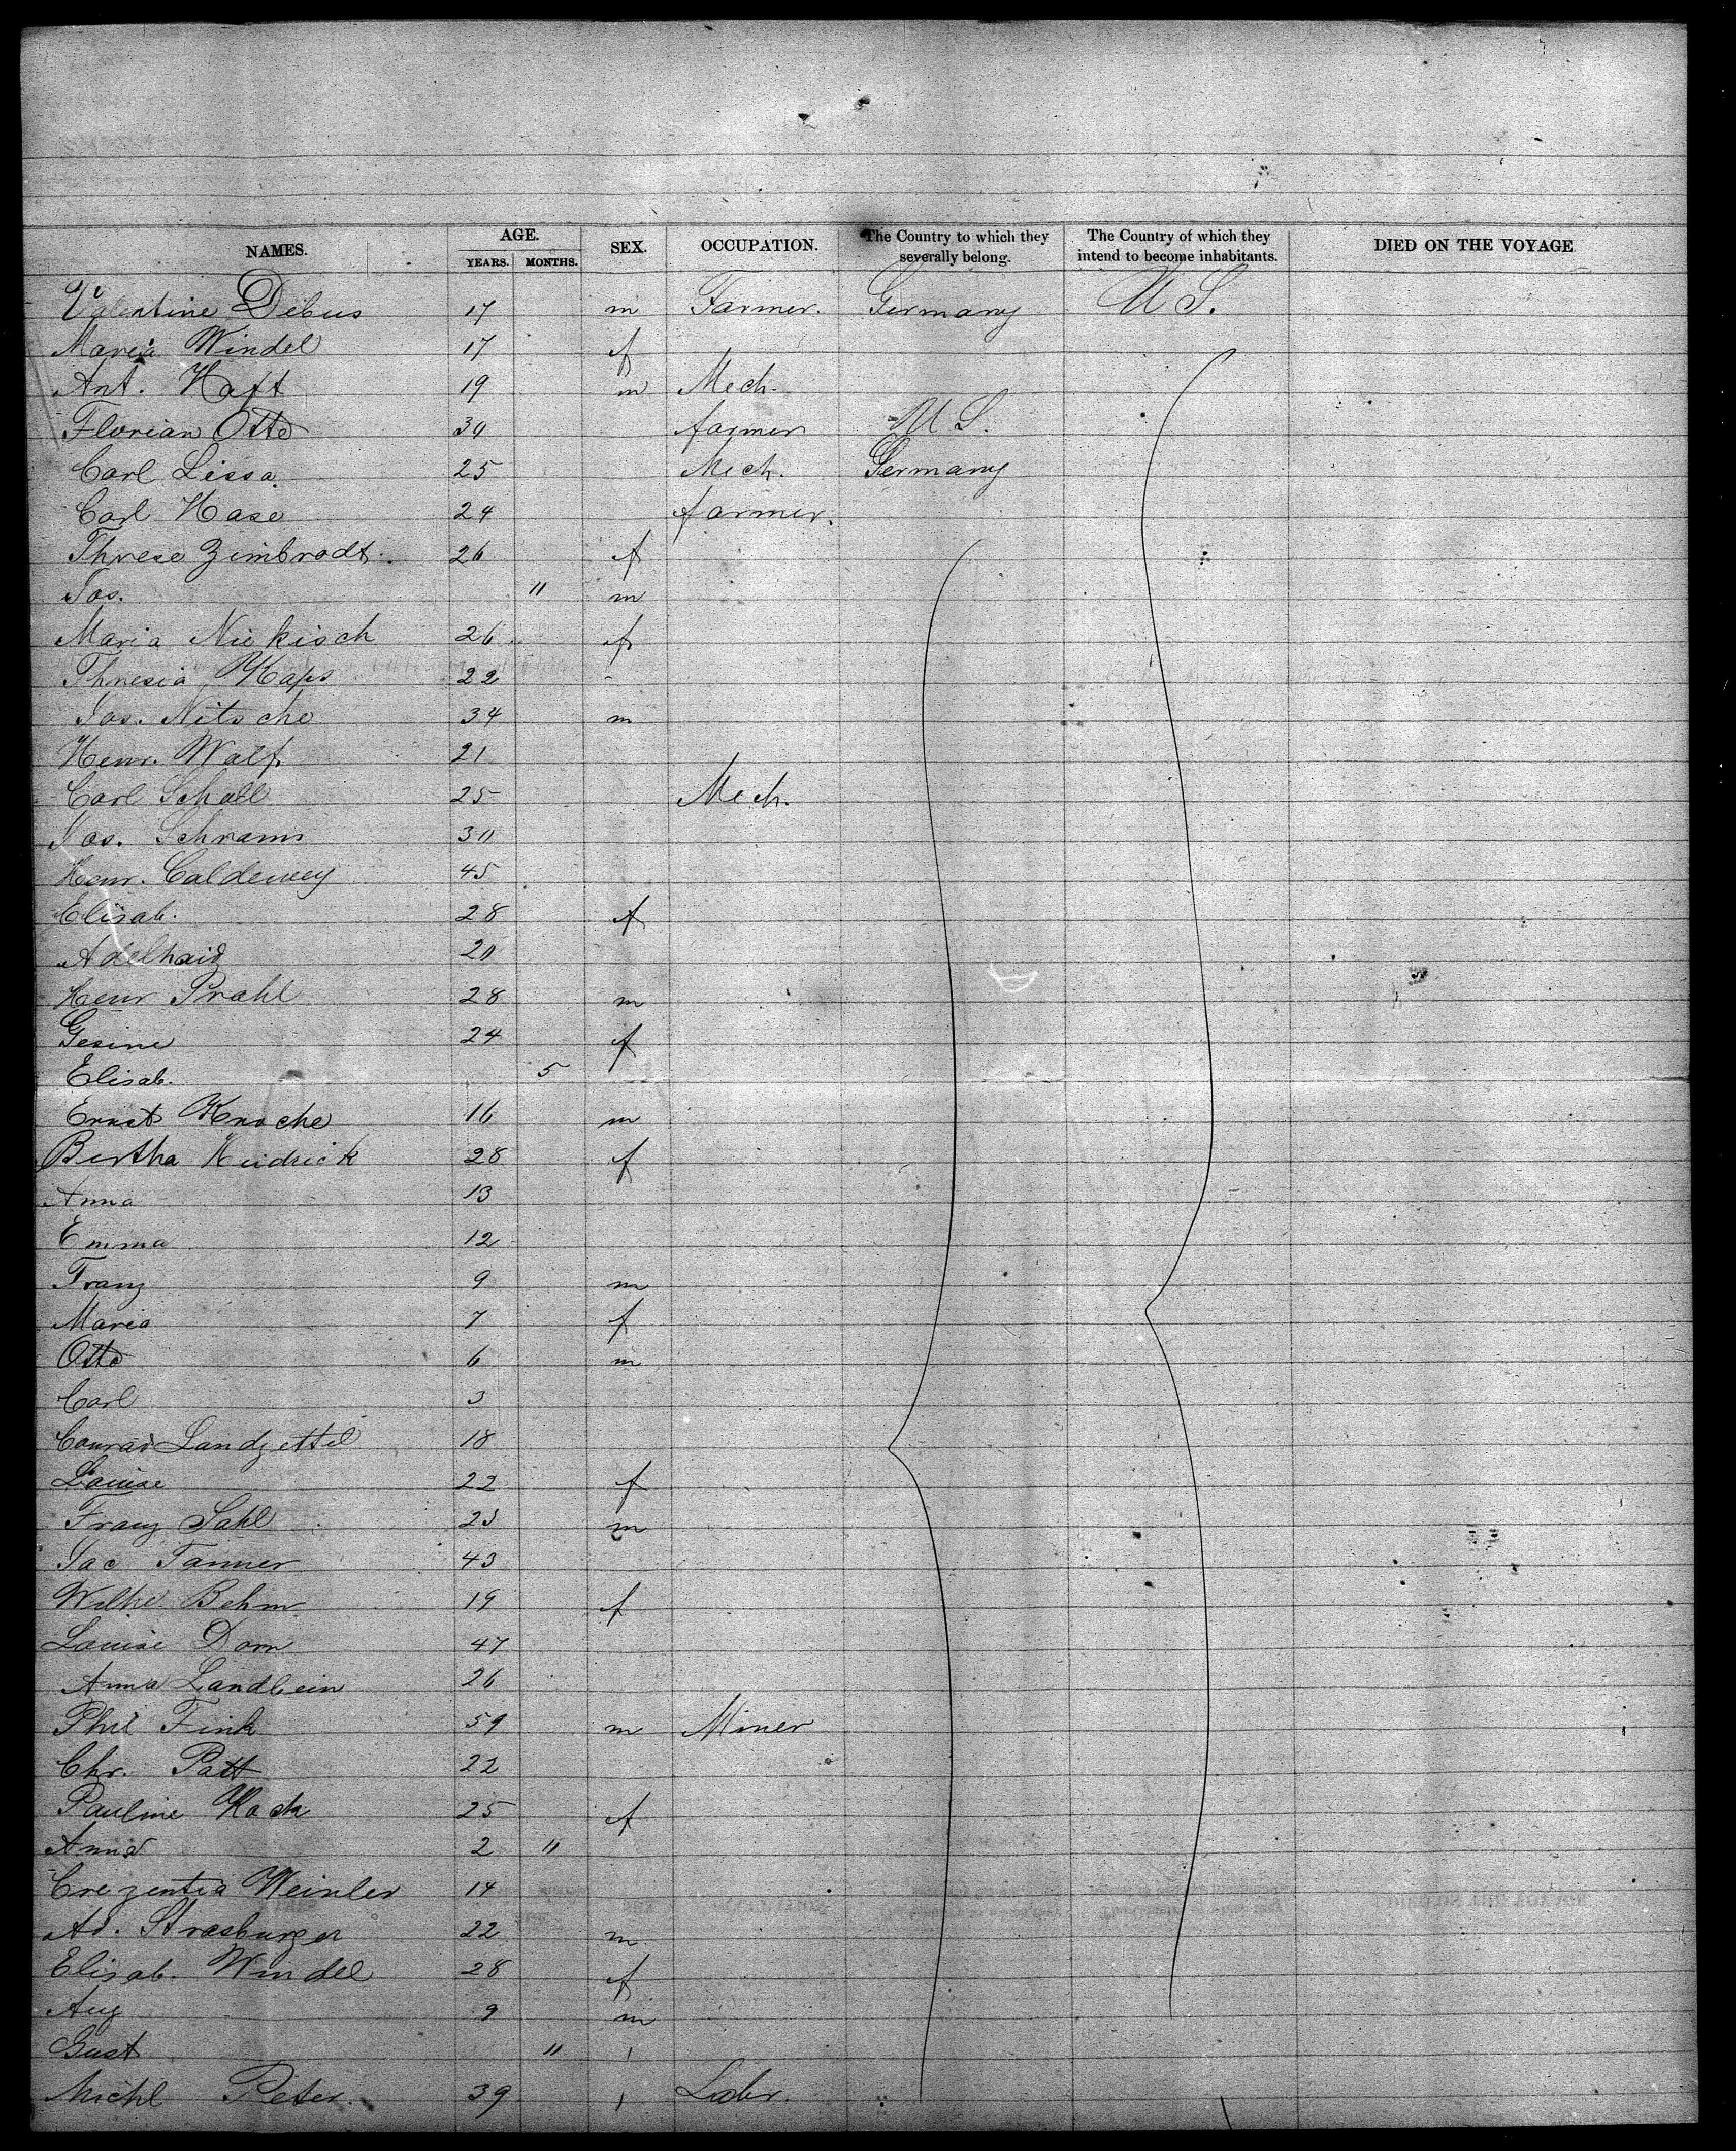 NAMES. AGE. SEX. OCCUPATION. The Country to which they severally belong. The Country of which they intend to become inhabitants. DIED ON THE VOYAGE
YEARS. MONTHS.
Valentine Debus 17 m Farmer. Germany U S.
Maria Windel 17 f
Ant. Haft 19 m Mech.
Florian Otto 34 farmer U S.
Carl Lissa 25 Mech. Germany
Carl Hase 24 farmer.
Threse Zimbrodt 26 f
Jos. 11 m
Maria Niekisch 26 f
Thresia Kaps 22 -
Jos. Nitsche 34 m
Henr. Walf 21
Carl Scholl 25 Mech.
Jos. Schramm 30
Henr. Caldewey 45
Elisab. 28 f
Adelhaid 20
Henr Prahl 28 m
Gesine 24 f
Elisab. 5
Ernst Knoche 16 m
Bertha Heidrick 28 f
Anna 13
Emma 12
Franz 9 m
Maria 7 f
Otto 6 m
Carl 3
Conrad Landzettel 18
Louise 22 f
Franz Sahl 23 m
Jac Tanner 43
Wilhe Behm 19 f
Louise Dorn 47
Anna Landbein 26
Phil Fink 59 m Miner
Chr. Patt 22
Pauline Koch 25 f
Anna 2 11
Crezentia Weinler 14
Ad. Strasburger 22 m
Elisab. Windel 28 f
Aug 9 m
Gust 11
Michl Peter 39 Labr.